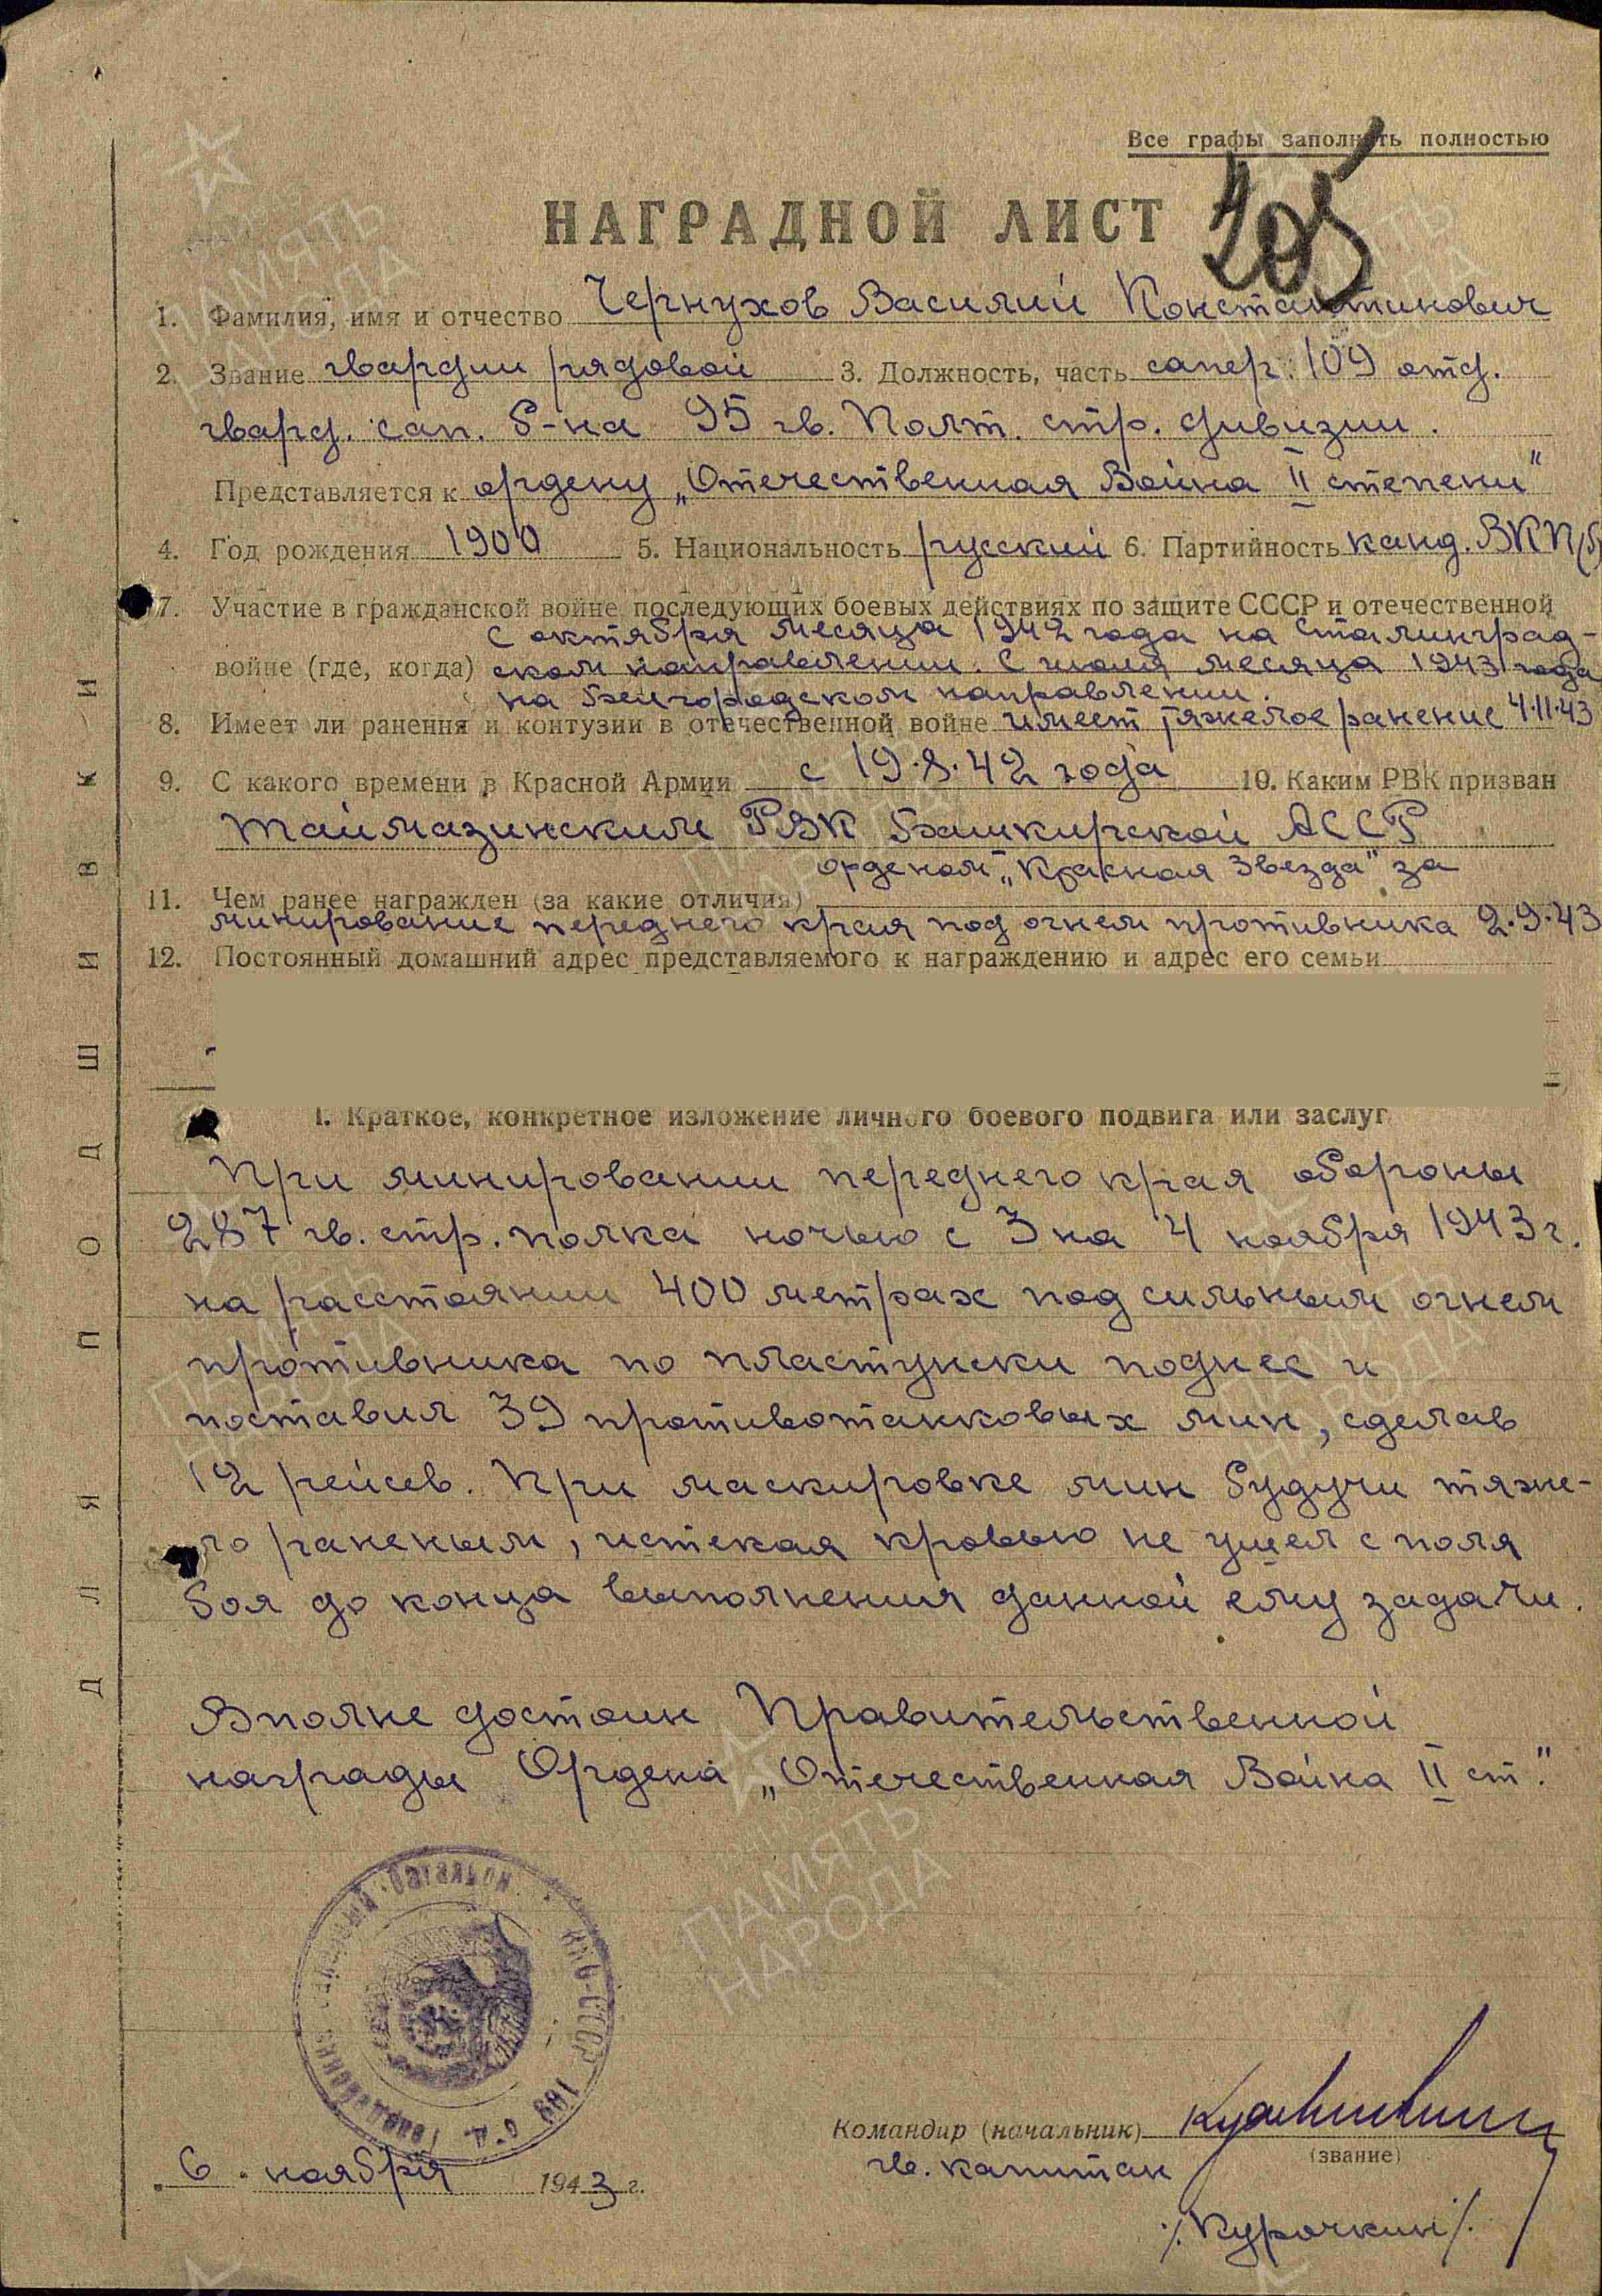 Все графы заполнять полностью
НАГРАДНОЙ ЛИСТ
205
1. Фамилия, имя и отчество Чернухов Василий Константинович
2. Звание гвардии рядовой 3. Должность, часть сапер 109 отд.
гвард. сап. б-на 95 гв. Полт. стр. дивизии.
Представляется к ордену „Отечественная Война II степени"
4. Год рождения 1900 5. Национальность русский 6. Партийность канд. ВКП(б)
7. Участие в гражданской войне последующих боевых действиях по защите СССР и отечественной
с октября месяца 1942 года на Сталинград-
войне (где, когда) ском направлении. С июля месяца 1943 года
на Белгородском направлении.
8. Имеет ли ранения и контузии в отечественной войне имеет тяжелое ранение 4.11.43
9. С какого времени в Красной Армии с 19.8.42 года 10. Каким РВК призван
Таймазинским РВК Башкирской АССР
орденом „Красная Звезда" за
11. Чем ранее награжден (за какие отличия)
минирование переднего края под огнем противника 2.9.43
12. Постоянный домашний адрес представляемого к награждению и адрес его семьи
I. Краткое, конкретное изложение личного боевого подвига или заслуг
При минировании переднего края обороны
287 гв. стр. полка ночью с 3 на 4 ноября 1943 г.
на расстоянии 400 метрах под сильным огнем
противника по пластунски поднес и
поставил 39 противотанковых мин, сделав
12 рейсев. При маскировке мин будучи тяже-
ло раненым, истекая кровью не ушел с поля
боя до конца выполнения данной ему задачи.
Вполне достоин Правительственной
награды Ордена „Отечественная Война II ст".
ДЛЯ ПОДШИВКИ
батальон НКО-СССР 109 о.д. Гвардейский
Командир (начальник)
(звание)
гв. капитан
/Курочкин/.
6. ноября 1943 г.
ПАМЯТЬ
НАРОДА